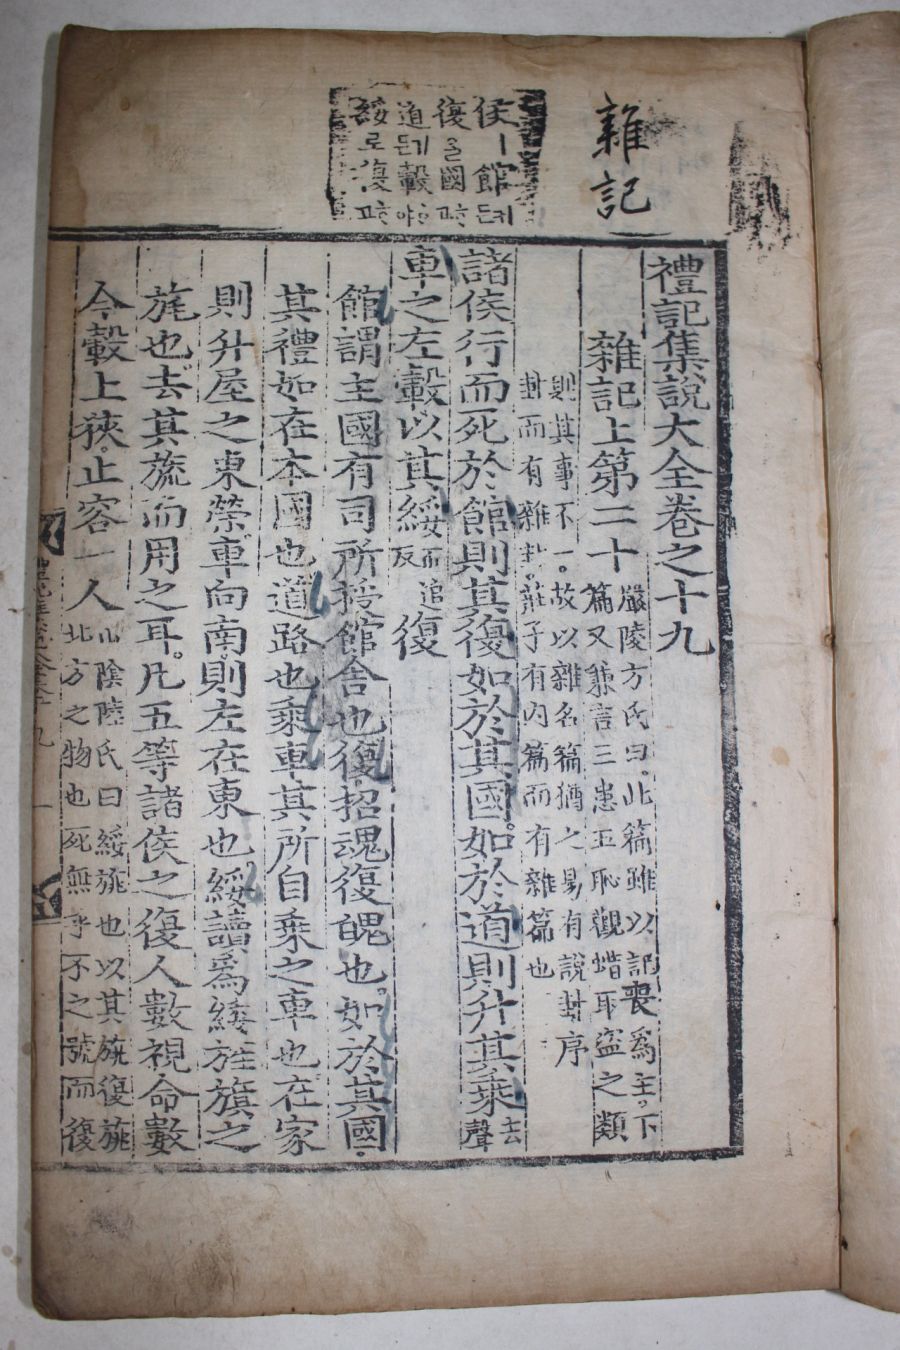 雜記
侯ㅣ館뎌
復을國ᄭᅵ
道뎌轂
綏로復
禮記集說大全卷之十九
雜記上第二十
嚴陵方氏曰此篇雖以記喪爲主下
篇又兼言三患五恥觀蜡取盜之類
則其事不一故以雜名篇猶之易有說卦序
卦而有雜卦莊子有內篇而有雜篇也
諸侯行而死於館則其復如於其國如於道則升其乘去聲
車之左轂以其綏而追反復
館謂主國有司所授館舍也復招魂復魄也如於其國
其禮如在本國也道路也乘車其所自乘之車也在家
則升屋之東榮車向南則左在東也綏讀爲緌旌旗之
旄也去其旒而用之耳凡五等諸侯之復人數視命數
今轂上狹止容一人
山陰陸氏曰綏旄也以其旒復旄
北方之物也死無乎不之號而復